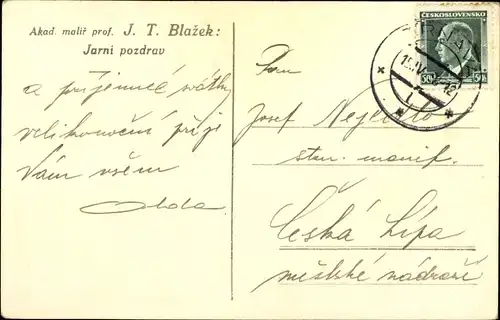 Akad. malíř prof. J. T. Blažek:
Jarní pozdrav
a příjemné svátky
velikonoční přeje
Vám všem
Olda.
ČESKOSLOVENSKO
50h 50h
Pan
Josef Nejedlo
stan. manip.
Česká Lípa
městské nádraží